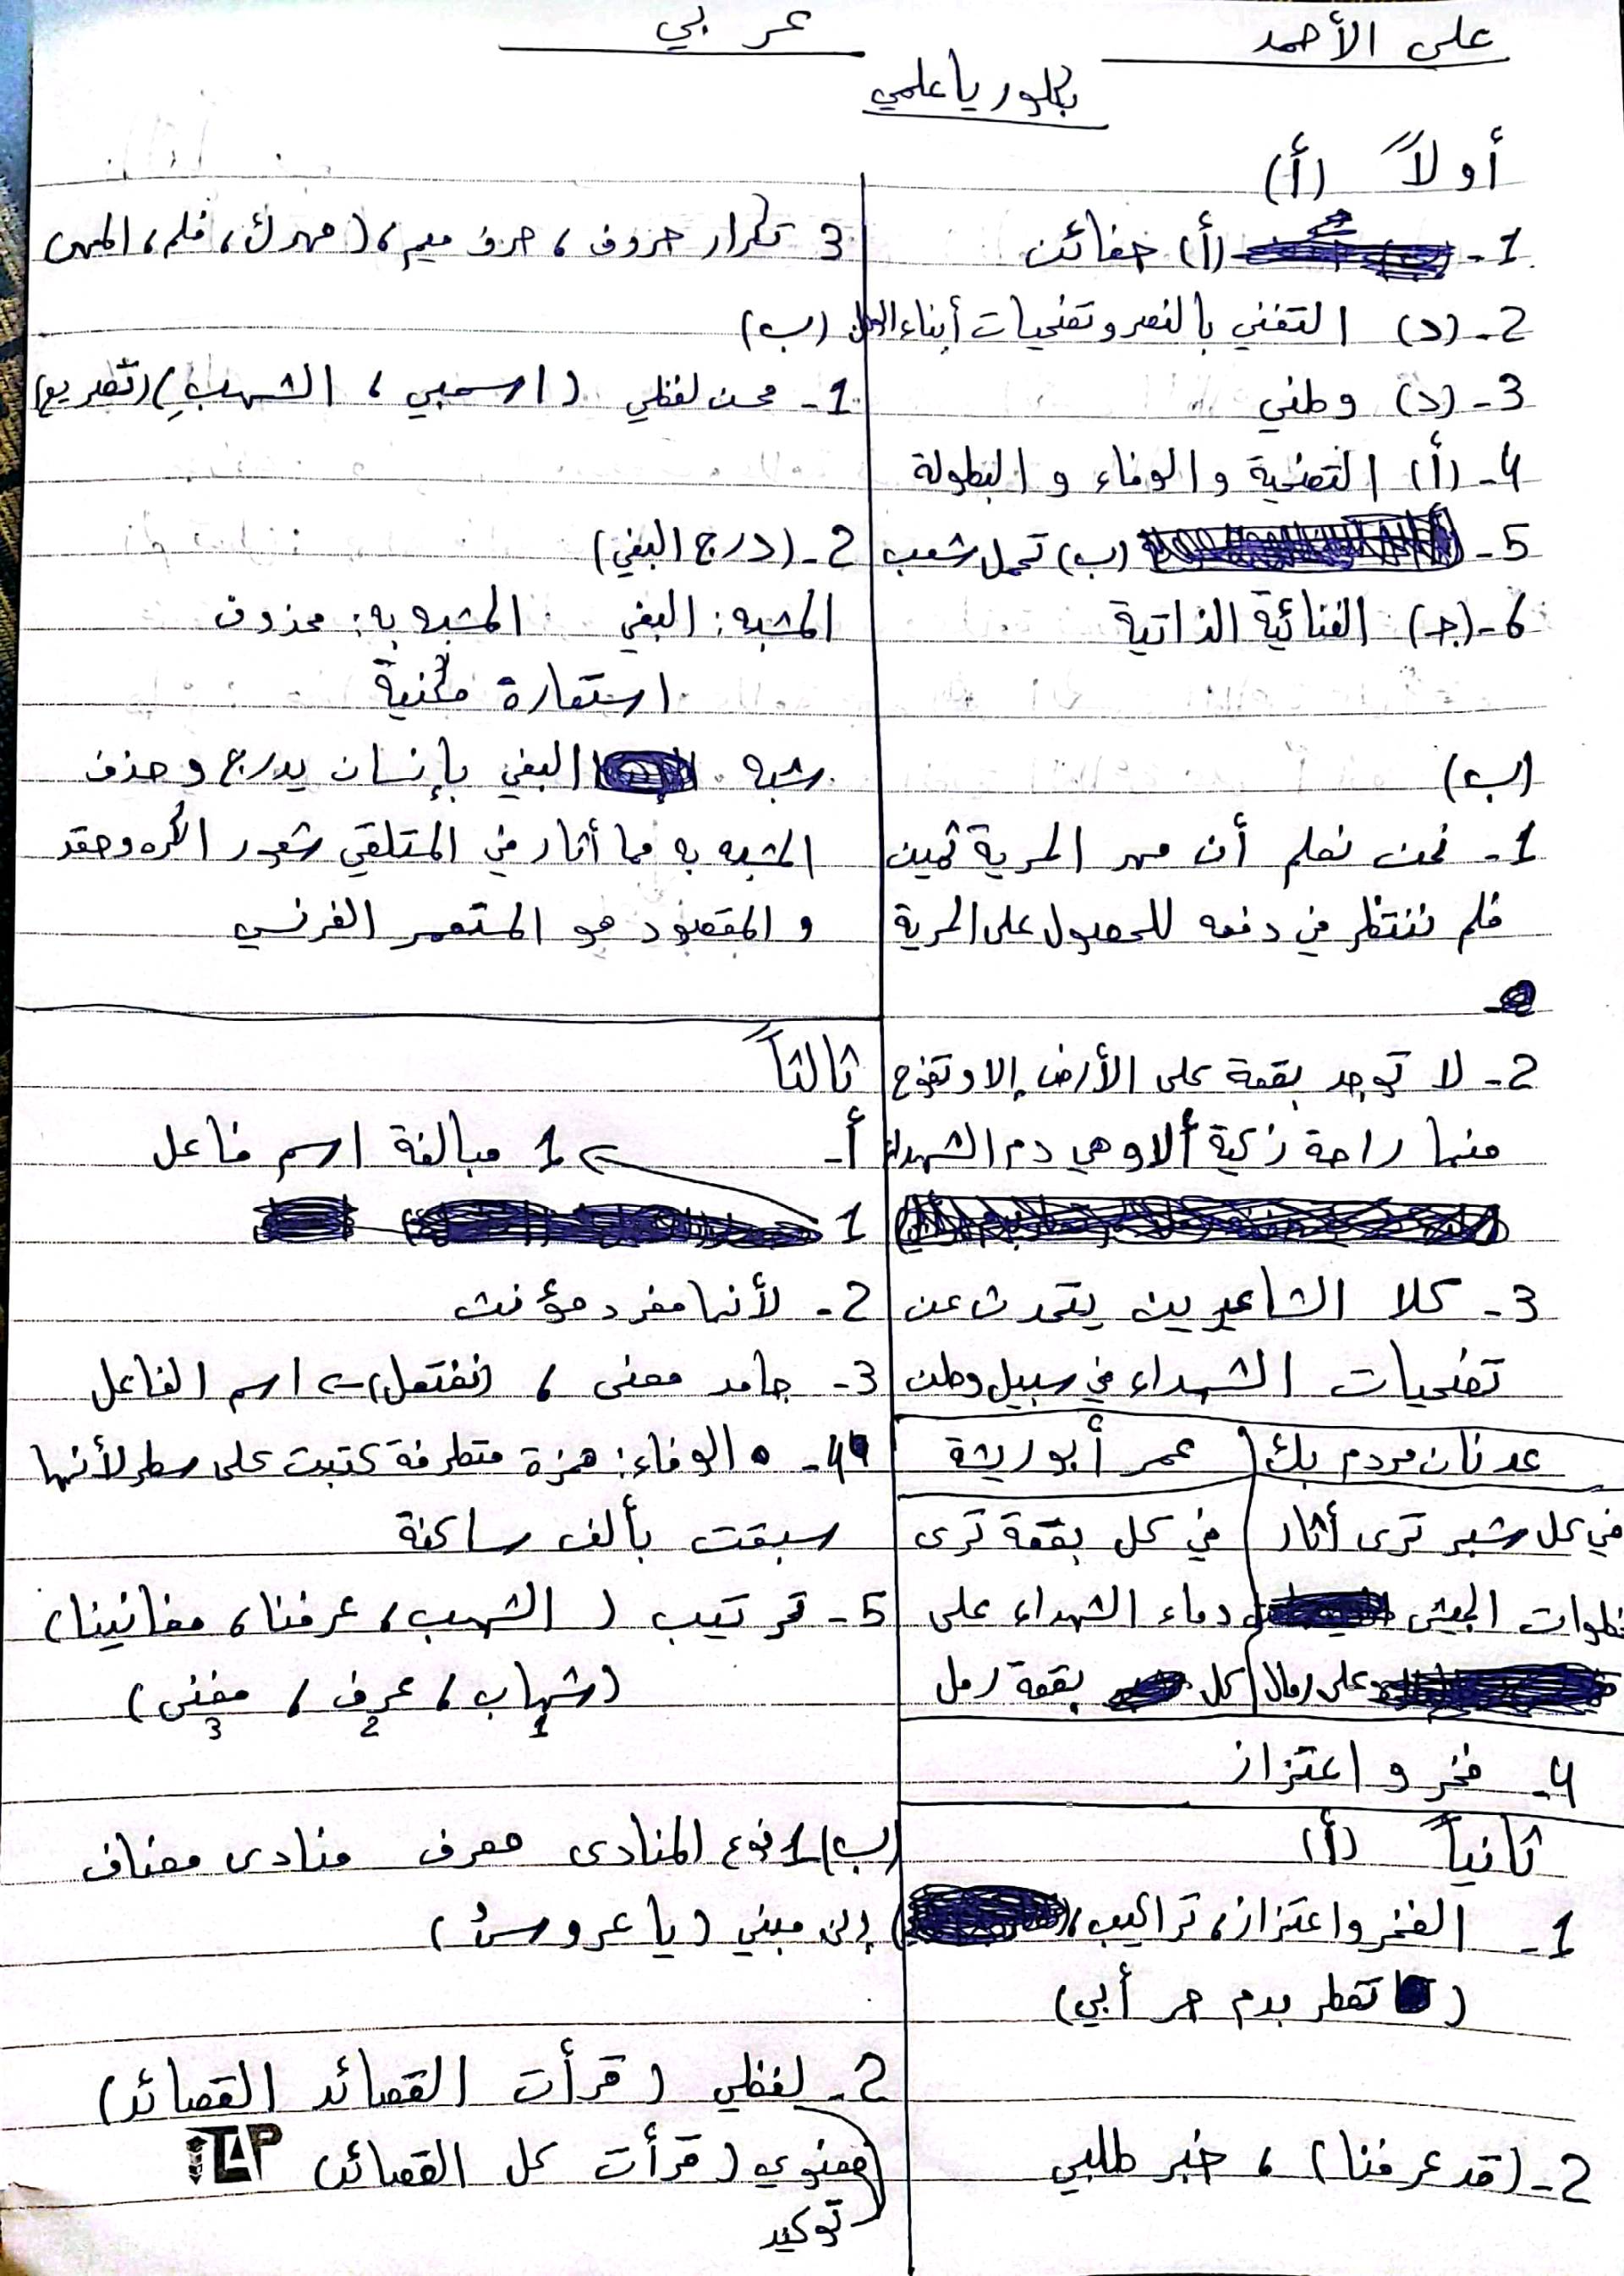 على الأحمد
عربي
بكلوريا علمي
أولاً (أ)
1- (أ) حفائن
2- (د) التغني بالنصر وتضحيات أبناء
3- (د) وطني
4- (أ) التضحية والوفاء و البطولة
5- (ب) تحمل شعب
6- (جـ) الغنائية الذاتية
(ب)
1- نحن نعلم أن مهر الحرية ثمين
فلم ننتظر في دفعه للحصول على الحرية
2- لا توجد بقعة على الأرض إلا وتفوح
منها راحة زكية ألا وهي دم الشهداء
3- كلا الشاعرين يتحدث عن
تضحيات الشهداء في سبيل وطن
عدنان مردم بك
عمر أبو ريشة
في كل شبر ترى أثار
في كل بقعة ترى
خطوات الجيش
دماء الشهداء على
على رمال
كل بقعة رمل
4- فخر و اعتزاز
ثانياً (أ)
1- الفخر واعتزاز، تراكيب،
( تعطر بدم حر أبي)
2- (قد عرفنا) ، خبر طلبي
3 تكرار حروف ، حرف ميم، (مهرك، فلم، المهر)
(ب)
1- محسن لفظي (اسحبي ، الشهبِ) (تصريع)
2- (درج البغي)
المشبه: البغي المشبه به: محذوف
استعارة مكنية
شبه البغي بإنسان يدرج و حذف
المشبه به مما أثار في المتلقي شعور الكره وحقد
و المقصود هو المستعمر الفرنسي
ثالثاً
أ- 1 مبالغة اسم فاعل
1
2- لأنها مفرد مؤنث
3- جامد معنى ، (نفتعل) اسم الفاعل
4- الوفاء: همزة متطرفة كتبت على سطر لأنها
سبقت بألف ساكنة
5- ترتيب ( الشهب، عرفنا، مغانينا)
(شهاب، عرف، مغنى)
1 2 3
(ب) 1 نوع المنادى معرف منادى مضاف
إلى مبني (يا عروسُ)
2- لفظي (قرأت القصائد القصائد)
معنوي (قرأت كل القصائد)
توكيد
TAP